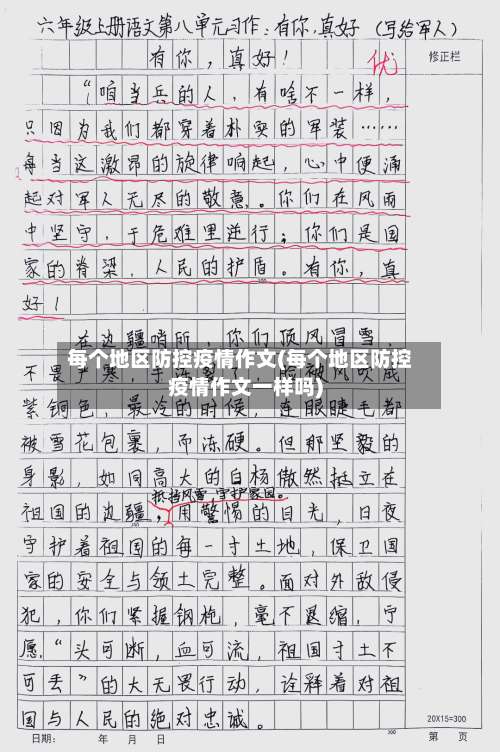 六年级上册语文第八单元习作：有你，真好（写给军人）
有你，真好！
优
修正栏
“咱当兵的人，有啥不一样，
只因为我们都穿着朴实的军装……
每当这激昂的旋律响起，心中便涌
起对军人无尽的敬意。你们在风雨
中坚守，于危难里逆行；你们是国
家的脊梁，人民的护盾。有你，真
好！
在边疆哨所，你们顶风冒雪，
每个地区防控疫情作文(每个地区防控
疫情作文一样吗)
不畏严寒，手冻
脸被风吹成
紫铜色，最冷的时候，连眼睫毛都
被雪花包裹，而冻硬。但那坚毅的
身影，如同高大的白杨傲然挺立在
抵挡风雪，守护家园。
祖国的边疆，用警惕的目光，日夜
守护着祖国的每一寸土地，保卫国
家的安全与领土完整。面对外敌侵
犯，你们紧握钢枪，毫不退缩，宁
愿“头可断，血可流，祖国寸土不
可丢”的大无畏行动，诠释着对祖
国与人民的绝对忠诚。
20X15=300
日期： 年 月 日 300 第 页